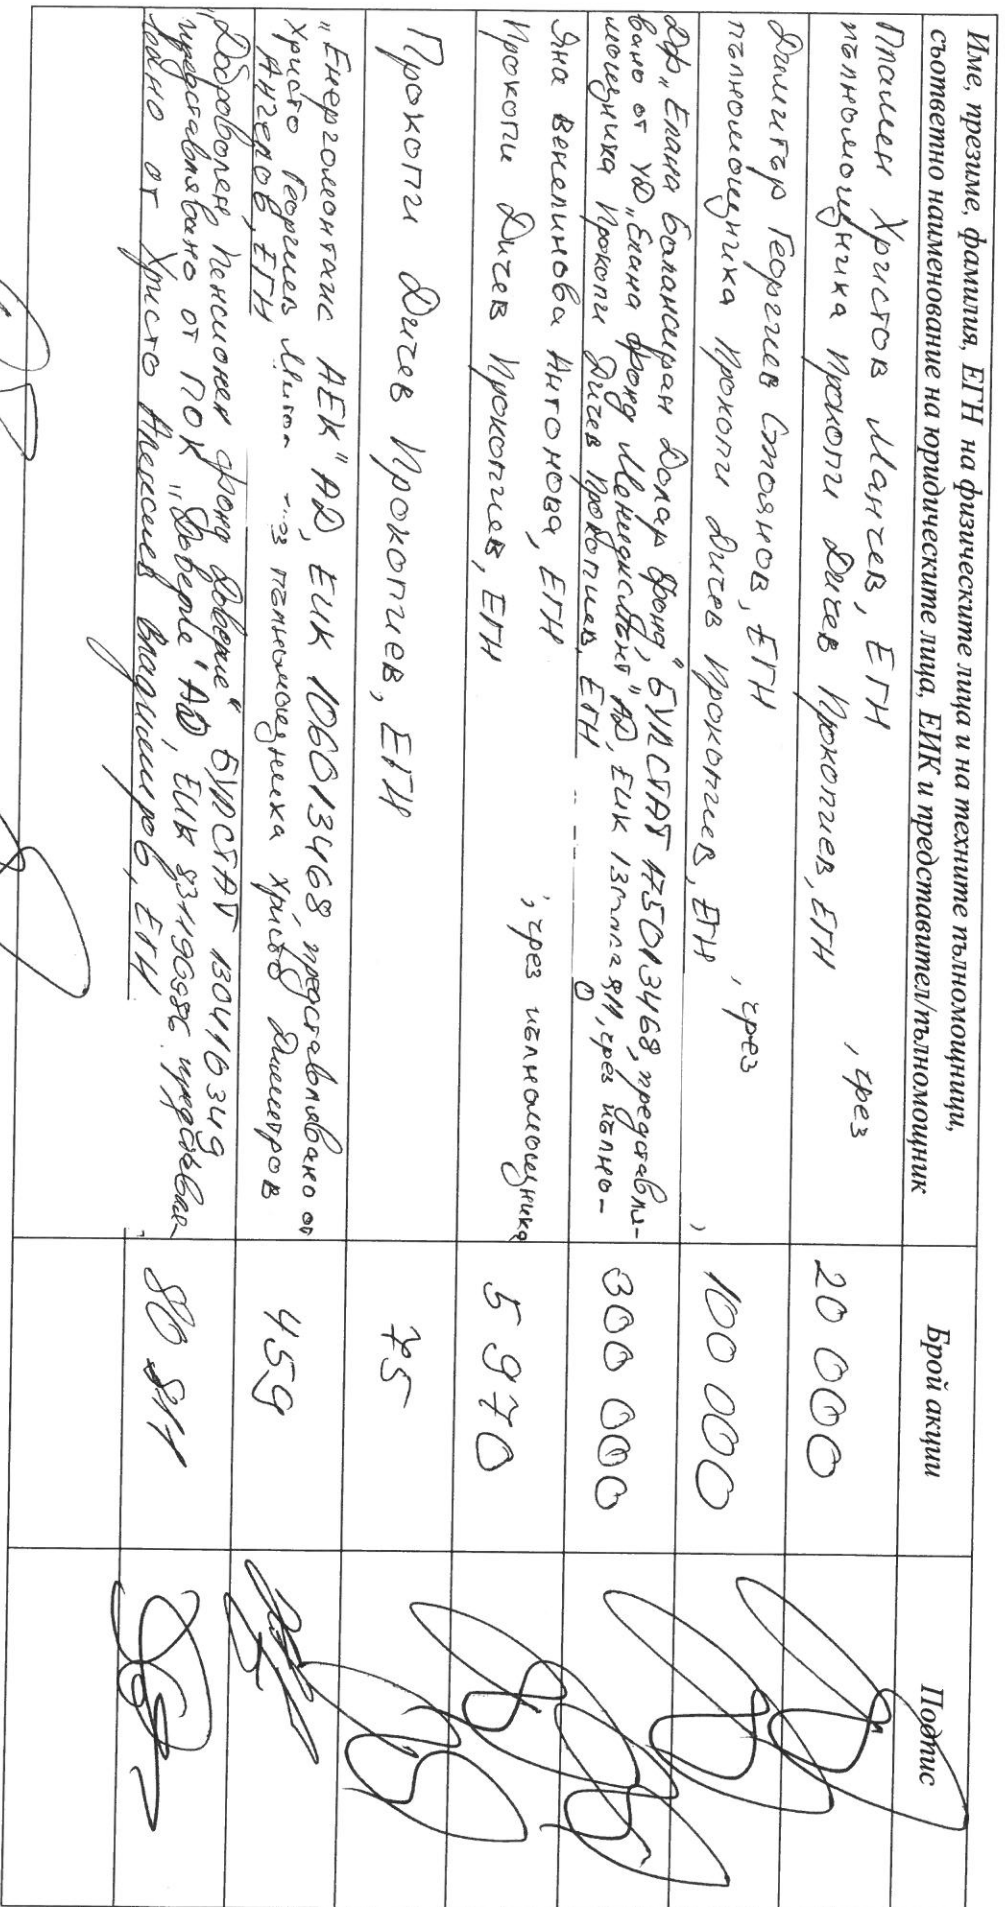 Име, презиме, фамилия, ЕГН на физическите лица и на техните пълномощници,
съответно наименование на юридическите лица, ЕИК и представител/пълномощник
Брой акции
Подпис
Пламен Христов Манчев, ЕГН
пълномощника Прокопи Дичев Прокопиев, ЕГН , чрез
20 000
Димитър Георгиев Стоянов, ЕГН , чрез
пълномощника Прокопи Дичев Прокопиев, ЕГН ,
100 000
ДФ „Елана Балансиран Долар Фонд“, БУЛСТАТ 175013468, представля-
вано от УД „Елана Фонд Мениджмънт“ АД, ЕИК , чрез пълно-
мощника Прокопи Дичев Прокопиев, ЕГН
300 000
Яна Венелинова Антонова, ЕГН , чрез пълномощника
Прокопи Дичев Прокопиев, ЕГН
5 970
Прокопи Дичев Прокопиев, ЕГН
75
„Енергомонтаж АЕК“ АД, ЕИК 106013468, представлявано от
Христо Георгиев пълномощника Христо Димитров
Ангелов, ЕГН
459
„Доброволен Пенсионен фонд Доверие“ БУЛСТАТ 130416349
представлявано от ПОК „Доверие“ АД, ЕИК представля-
вано от Христо Алексиев Владимиров, ЕГН
80 811